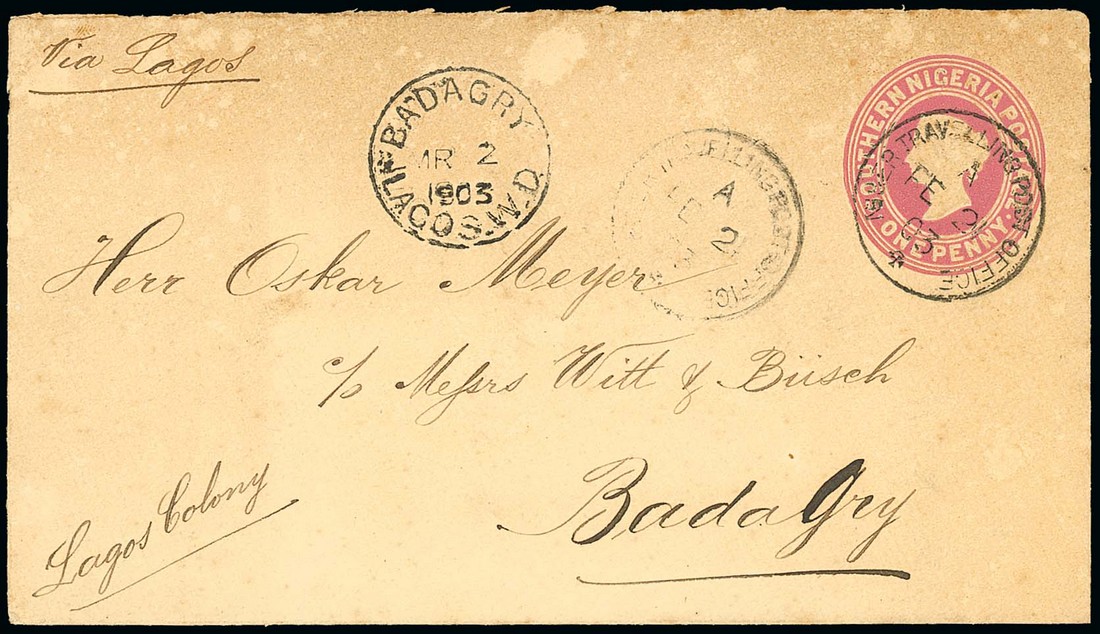 Via Lagos
SOUTHERN NIGERIA POSTAGE
ONE PENNY
NIGER TRAVELLING POST OFFICE
A
FE 2
03
BADAGRY
MR 2
1903
LAGOS.W.D.
TRAVELLING POST OFFICE
A
FE 2
Herr Oskar Meyer
c/o Messrs Witt & Büsch
BadaGry
Lagos Colony